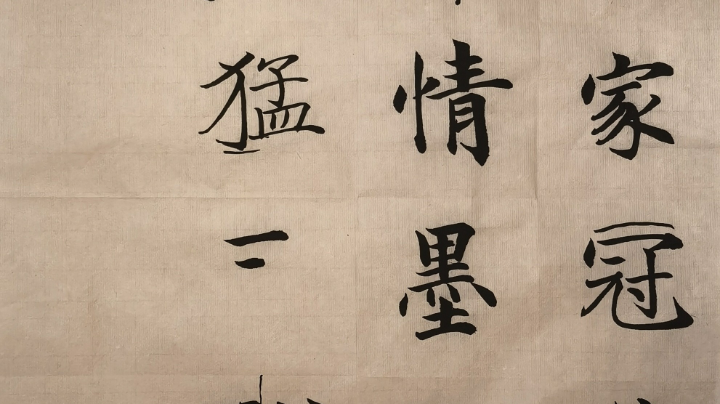 家冠
情墨
猛